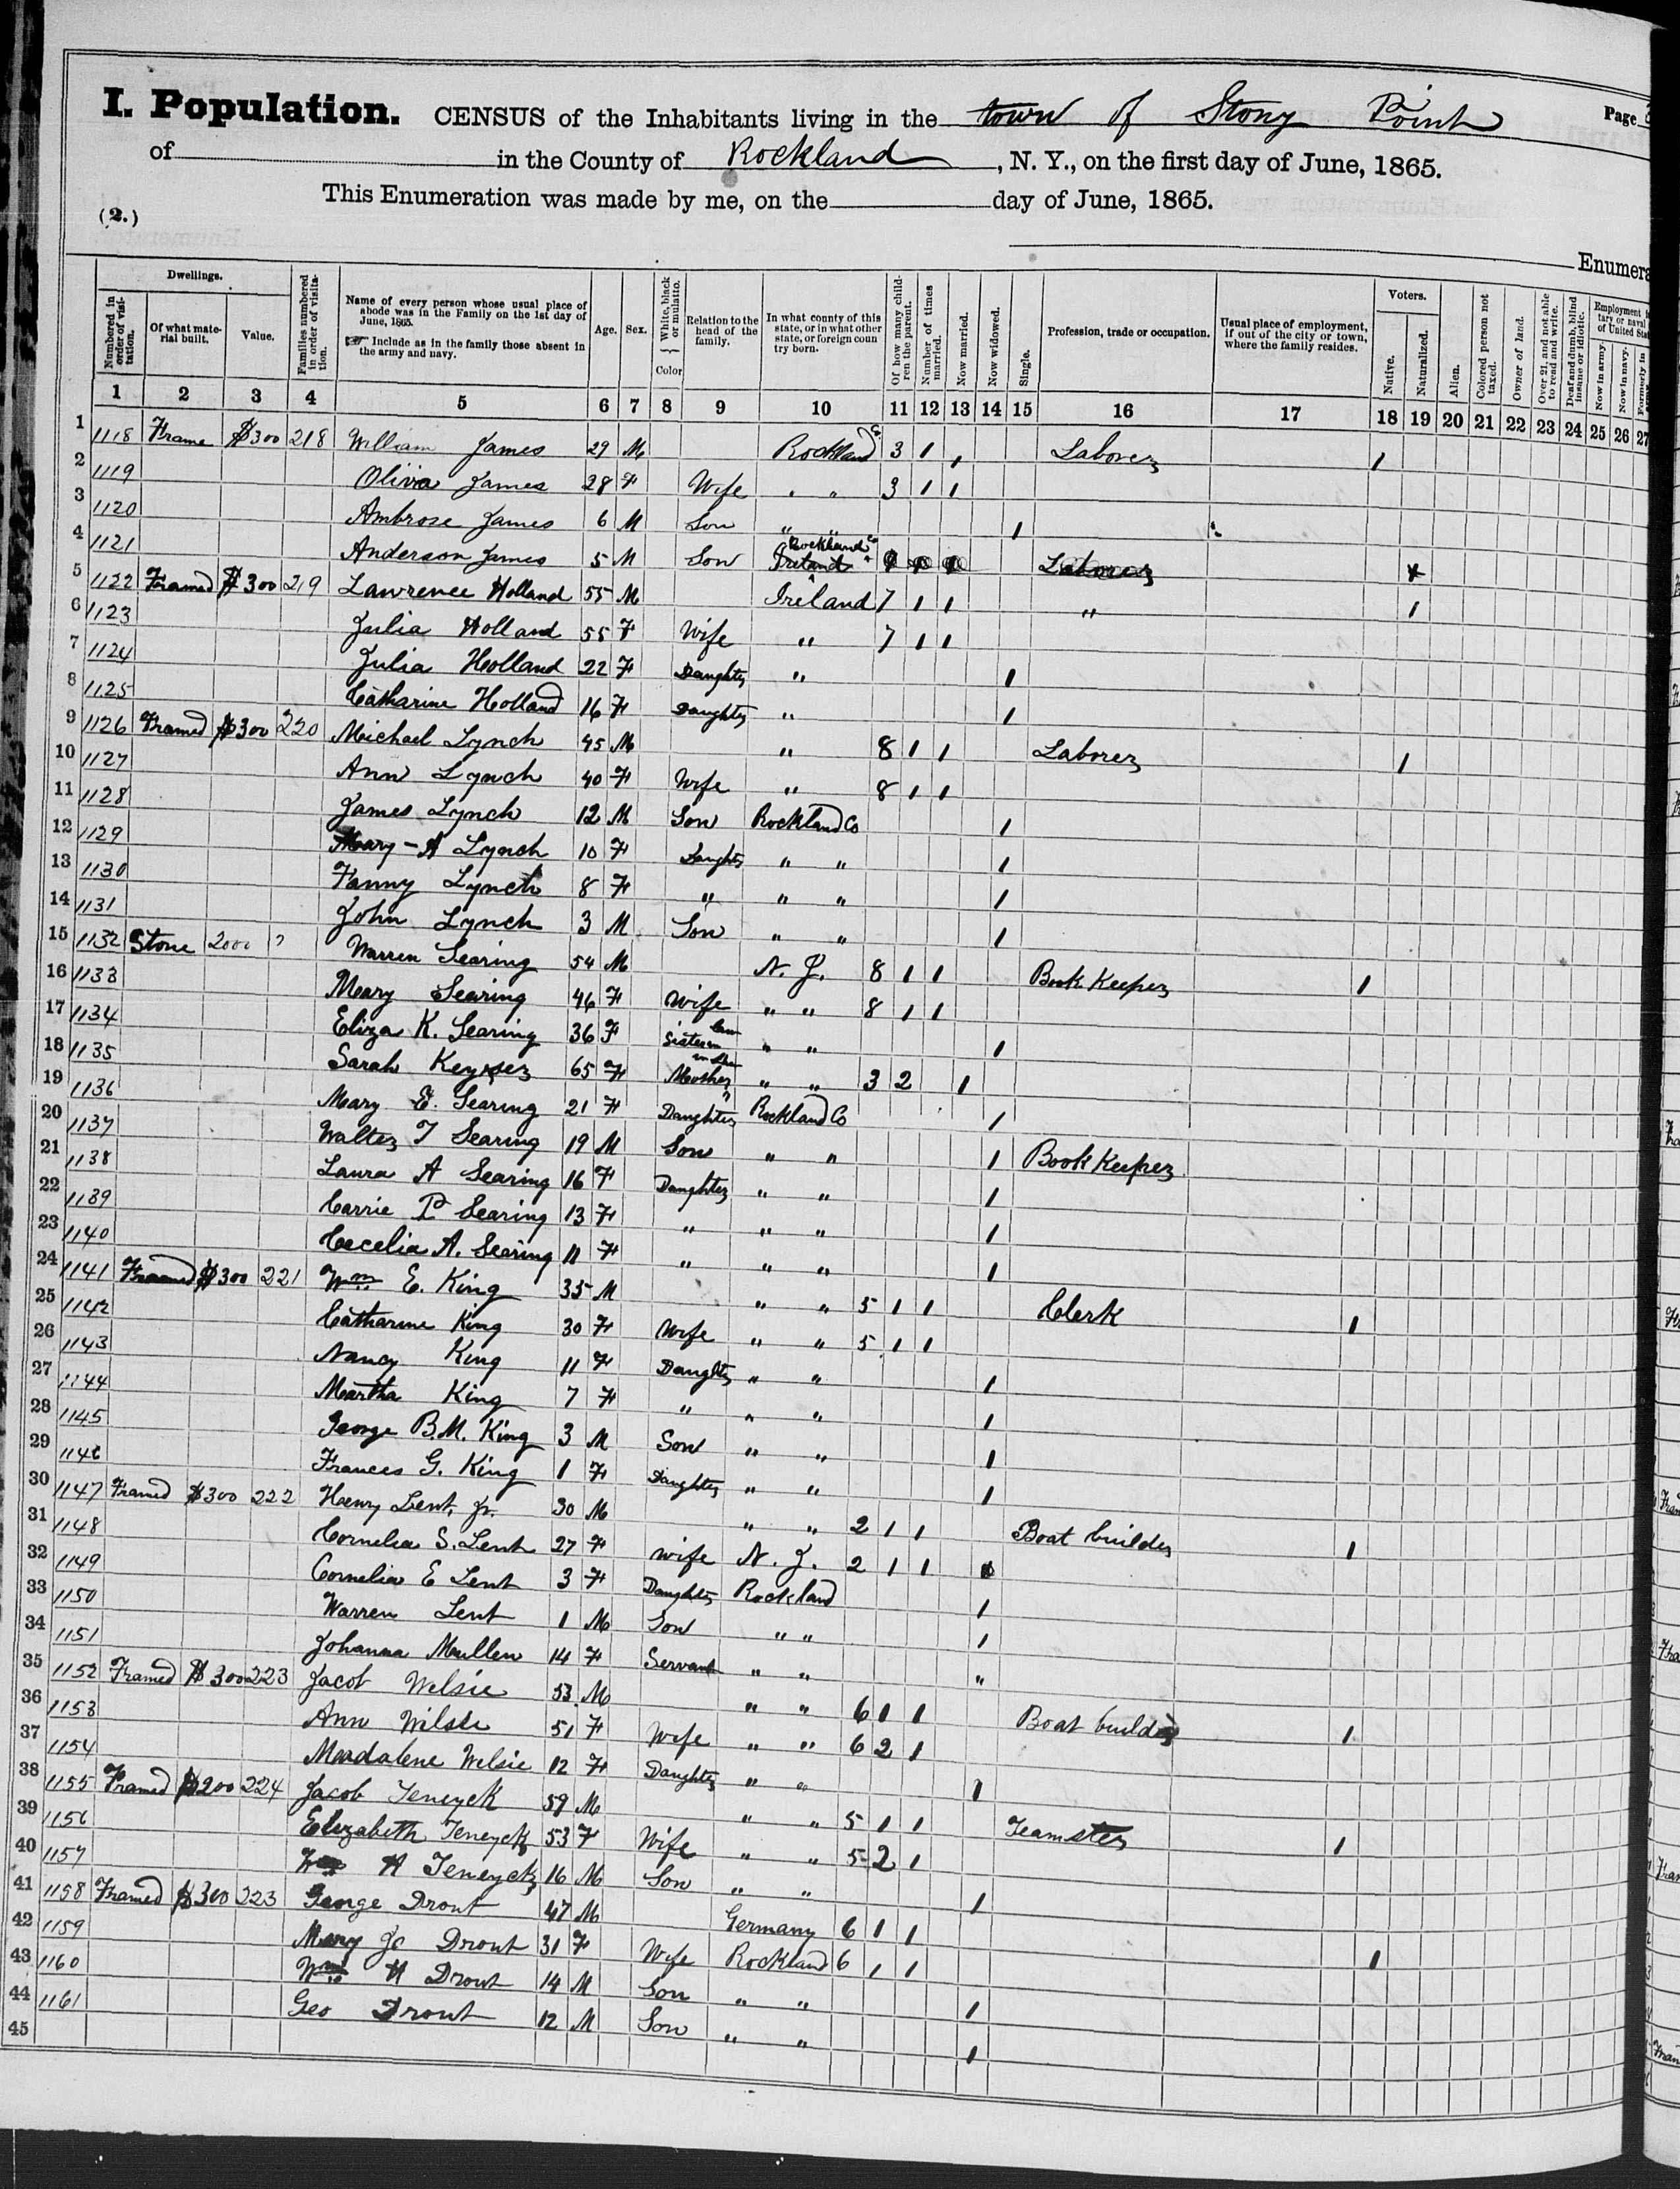 I. Population. CENSUS of the Inhabitants living in the town of Stony Point Page
of in the County of Rockland, N. Y., on the first day of June, 1865.
This Enumeration was made by me, on the day of June, 1865.
(2.)
Enumera
Dwellings.
Numbered in order of visitation.
Of what material built.
Value.
Families numbered in order of visitation.
Name of every person whose usual place of abode was in the Family on the 1st day of June, 1865.
Include as in the family those absent in the army and navy.
Age.
Sex.
White, black or mulatto.
Color
Relation to the head of the family.
In what county of this state, or in what other state, or foreign country born.
Of how many children the parent.
Number of times married.
Now married.
Now widowed.
Single.
Profession, trade or occupation.
Usual place of employment, if out of the city or town, where the family resides.
Voters.
Native.
Naturalized.
Alien.
Colored person not taxed.
Owner of land.
Over 21, and not able to read and write.
Deaf and dumb, blind insane or idiotic.
Now in army.
Now in navy.
Formerly in
1 2 3 4 5 6 7 8 9 10 11 12 13 14 15 16 17 18 19 20 21 22 23 24 25 26 27
1 1118 Frame $300 218 William James 29 M Rockland Co 3 1 1 Laborer 1
2 1119 Olivia James 28 F Wife " " 3 1 1
3 1120 Ambrose James 6 M Son " " 1
4 1121 Anderson James 5 M Son Ireland Rockland Co Laborer
5 1122 Framed $300 219 Lawrence Holland 55 M Ireland 7 1 1 " 1
6 1123 Julia Holland 55 F Wife " 7 1 1
7 1124 Julia Holland 22 F Daughter " 1
8 1125 Catharine Holland 16 F Daughter " 1
9 1126 Framed $300 220 Michael Lynch 45 M " 8 1 1 Laborer 1
10 1127 Ann Lynch 40 F Wife " 8 1 1
11 1128 James Lynch 12 M Son Rockland Co 1
12 1129 Mary-A Lynch 10 F Daughter " " 1
13 1130 Fanny Lynch 8 F " " " 1
14 1131 John Lynch 3 M Son " " 1
15 1132 Stone 2000 ? Warren Searing 54 M N. J. 8 1 1 Book Keeper 1
16 1133 Mary Searing 46 F Wife " " 8 1 1
17 1134 Eliza K. Searing 36 F Sister in law " " 1
18 1135 Sarah Keyser 65 F Mother in law " " 3 2 1
19 1136 Mary E. Searing 21 F Daughter Rockland Co 1
20 1137 Walter T Searing 19 M Son " " 1 Book Keeper
21 1138 Laura A Searing 16 F Daughter " " 1
22 1139 Carrie P Searing 13 F " " " 1
23 1140 Cecelia A. Searing 11 F " " " 1
24 1141 Framed $300 221 Wm. E. King 35 M " " 5 1 1 Clerk 1
25 1142 Catharine King 30 F Wife " " 5 1 1
26 1143 Nancy King 11 F Daughter " " 1
27 1144 Martha King 7 F " " " 1
28 1145 George B.M. King 3 M Son " " 1
29 1146 Frances G. King 1 F Daughter " " 1
30 1147 Framed $300 222 Henry Lent, Jr. 30 M " " 2 1 1 Boat builder 1
31 1148 Cornelia S. Lent 27 F Wife N. J. 2 1 1
32 1149 Cornelia E Lent 3 F Daughter Rockland 1
33 1150 Warren Lent 1 M Son " " 1
34 1151 Johanna Mullen 14 F Servant " " "
35 1152 Framed $300 223 Jacob Welsie 53 M " " 6 1 1 Boat builder 1
36 1153 Ann Wilsie 51 F Wife " " 6 2 1
37 1154 Madalene Welsie 12 F Daughter " " 1
38 1155 Framed $200 224 Jacob Teneyck 59 M " " 5 1 1 Teamster 1
39 1156 Elizabeth Teneyck 53 F Wife " " 5 2 1
40 1157 A Teneyck 16 M Son " " 1
41 1158 Framed $300 223 George Drout 47 M Germany 6 1 1 1
42 1159 Mary Drout 31 F Wife Rockland 6 1 1
43 1160 Wm. H Drout 14 M Son " " 1
44 1161 Geo Drout 12 M Son " " 1
45